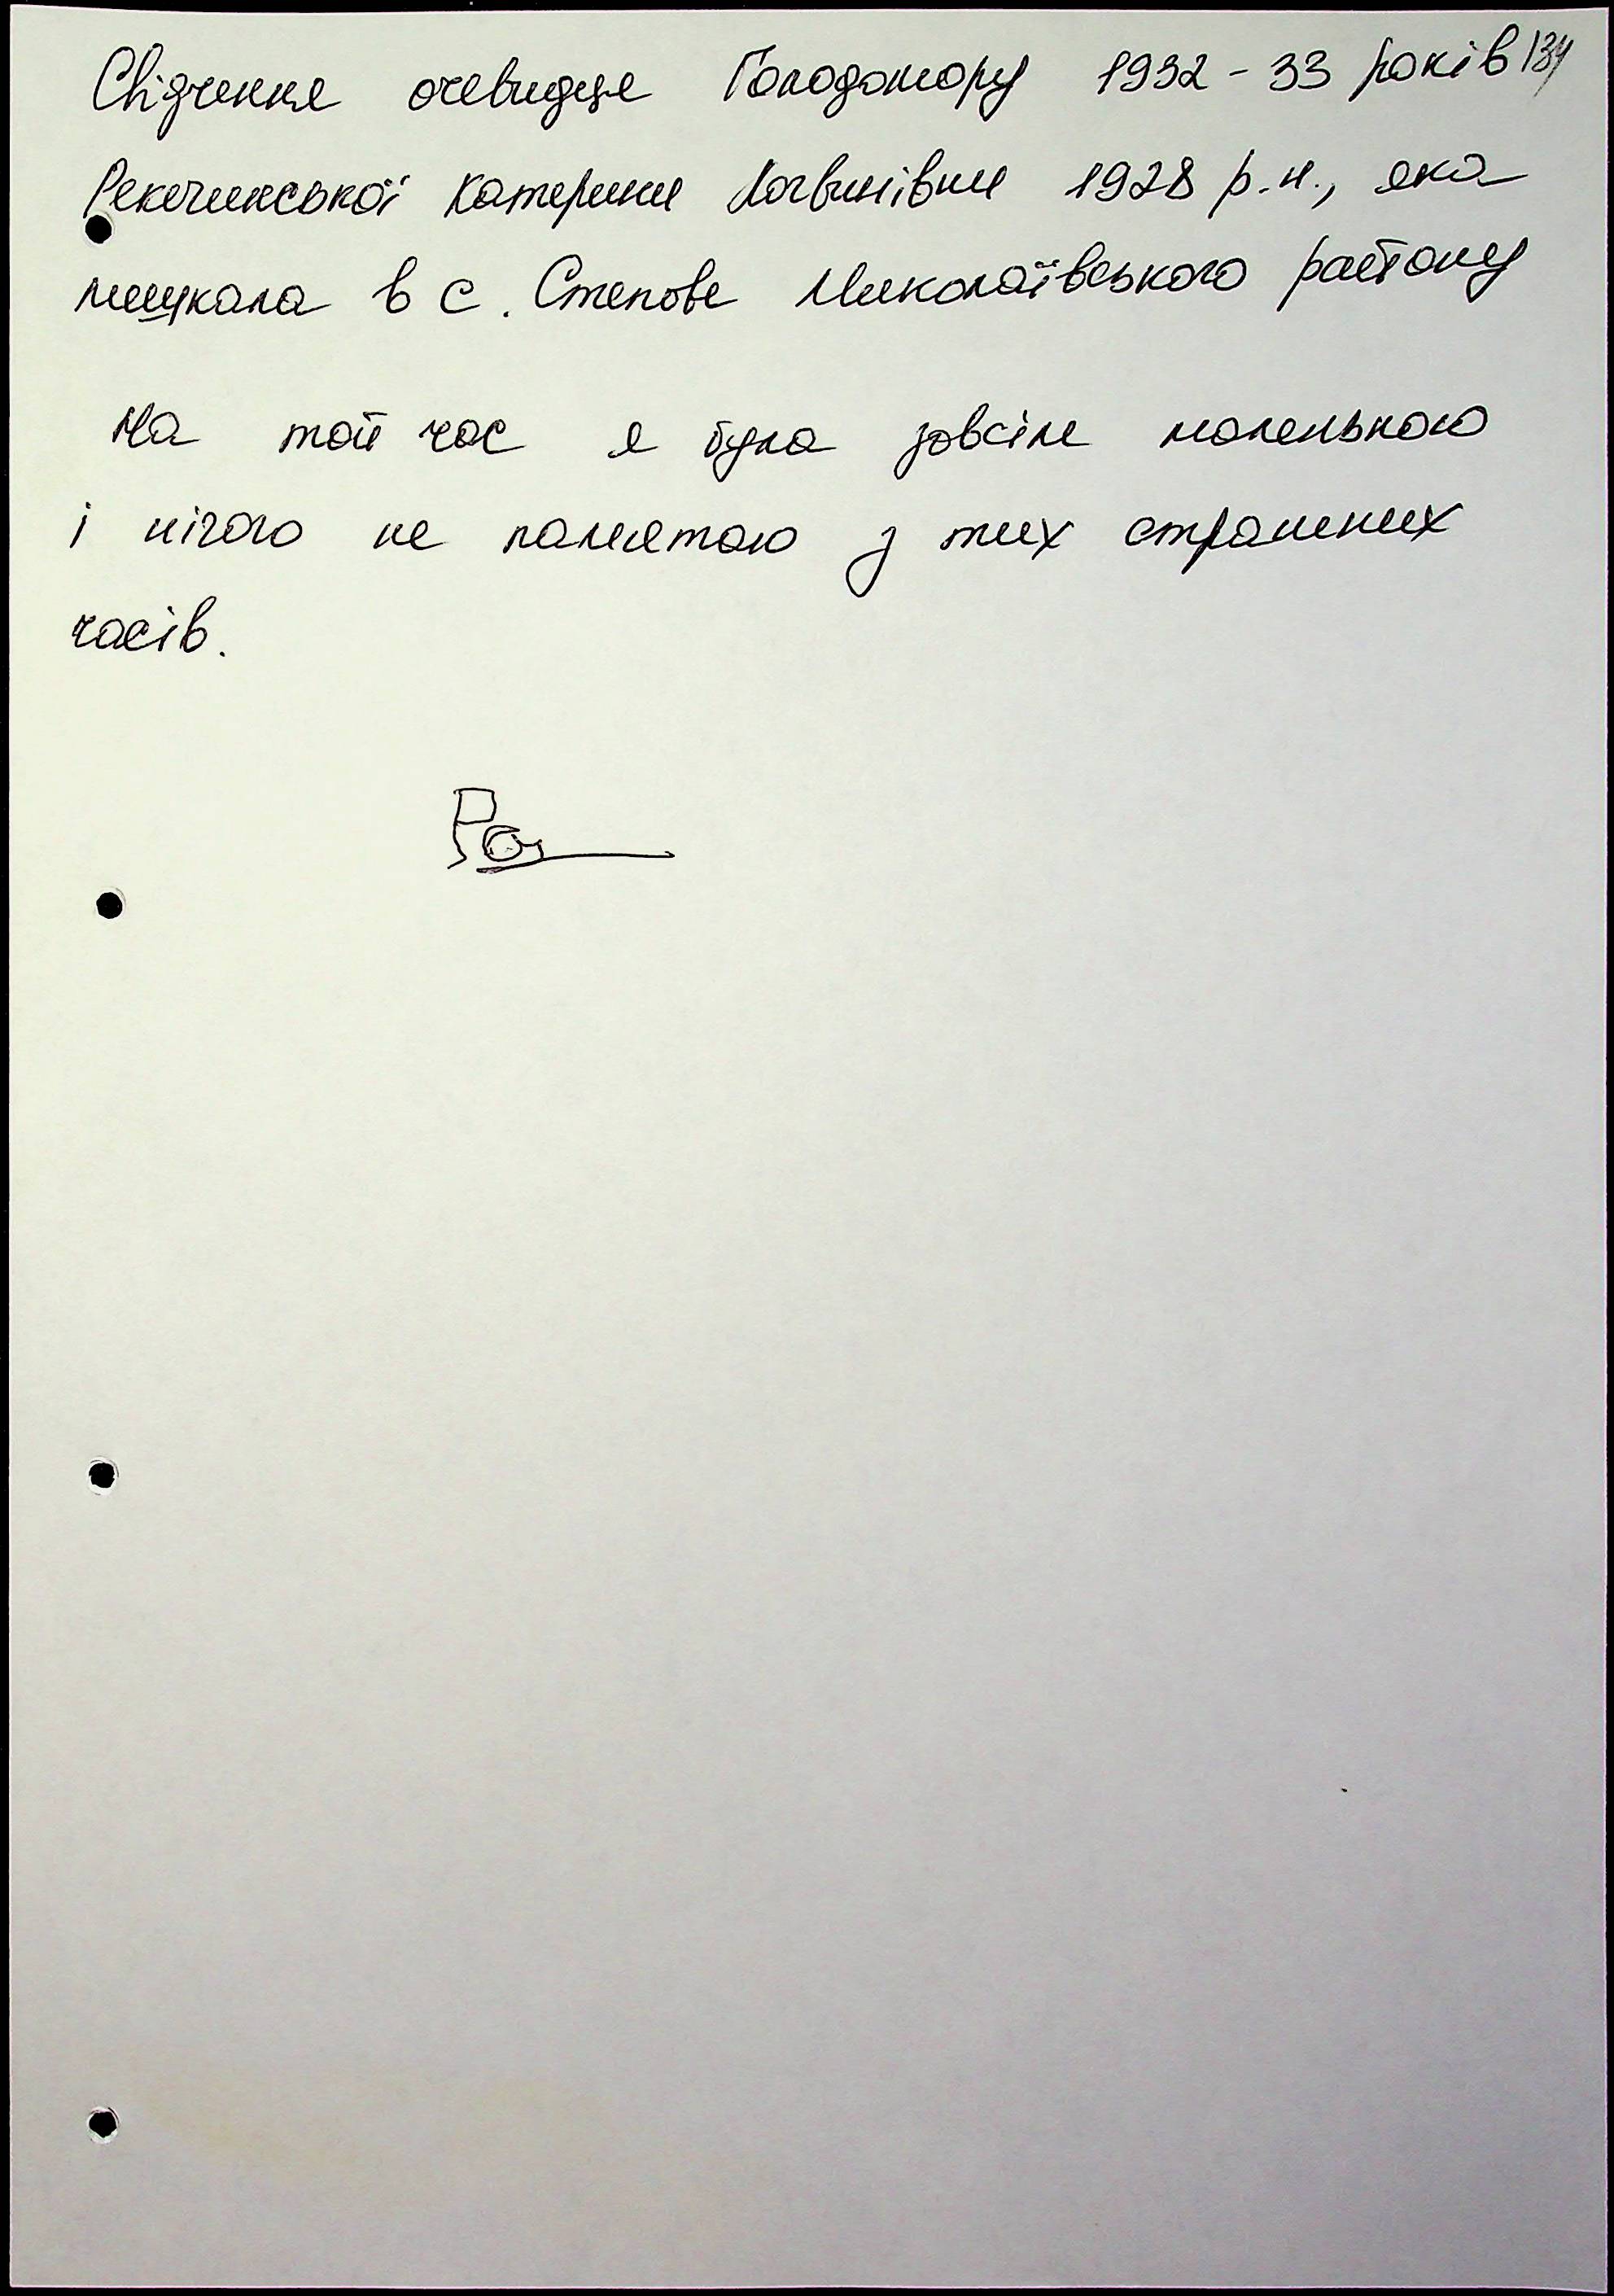 Свідчення очевидця Голодомору 1932-33 років 134
Рекечинської Катерини Логвинівни 1928 р.н., яка
мешкала в с. Степове Миколаївського району
На той час я була зовсім маленькою
і нічого не памятаю з тих страшних
часів.